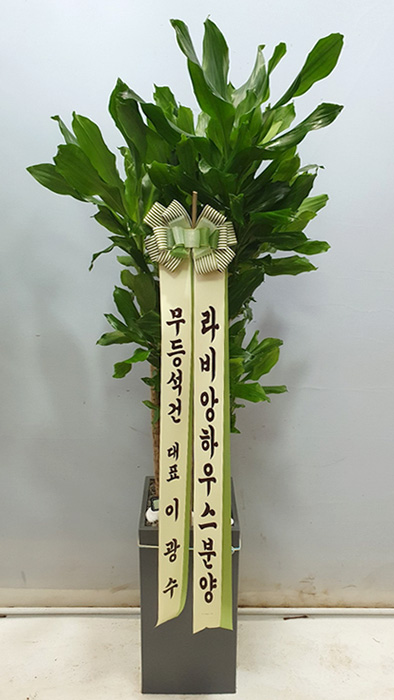 라비앙하우스분양
무등석건 대표 이광수